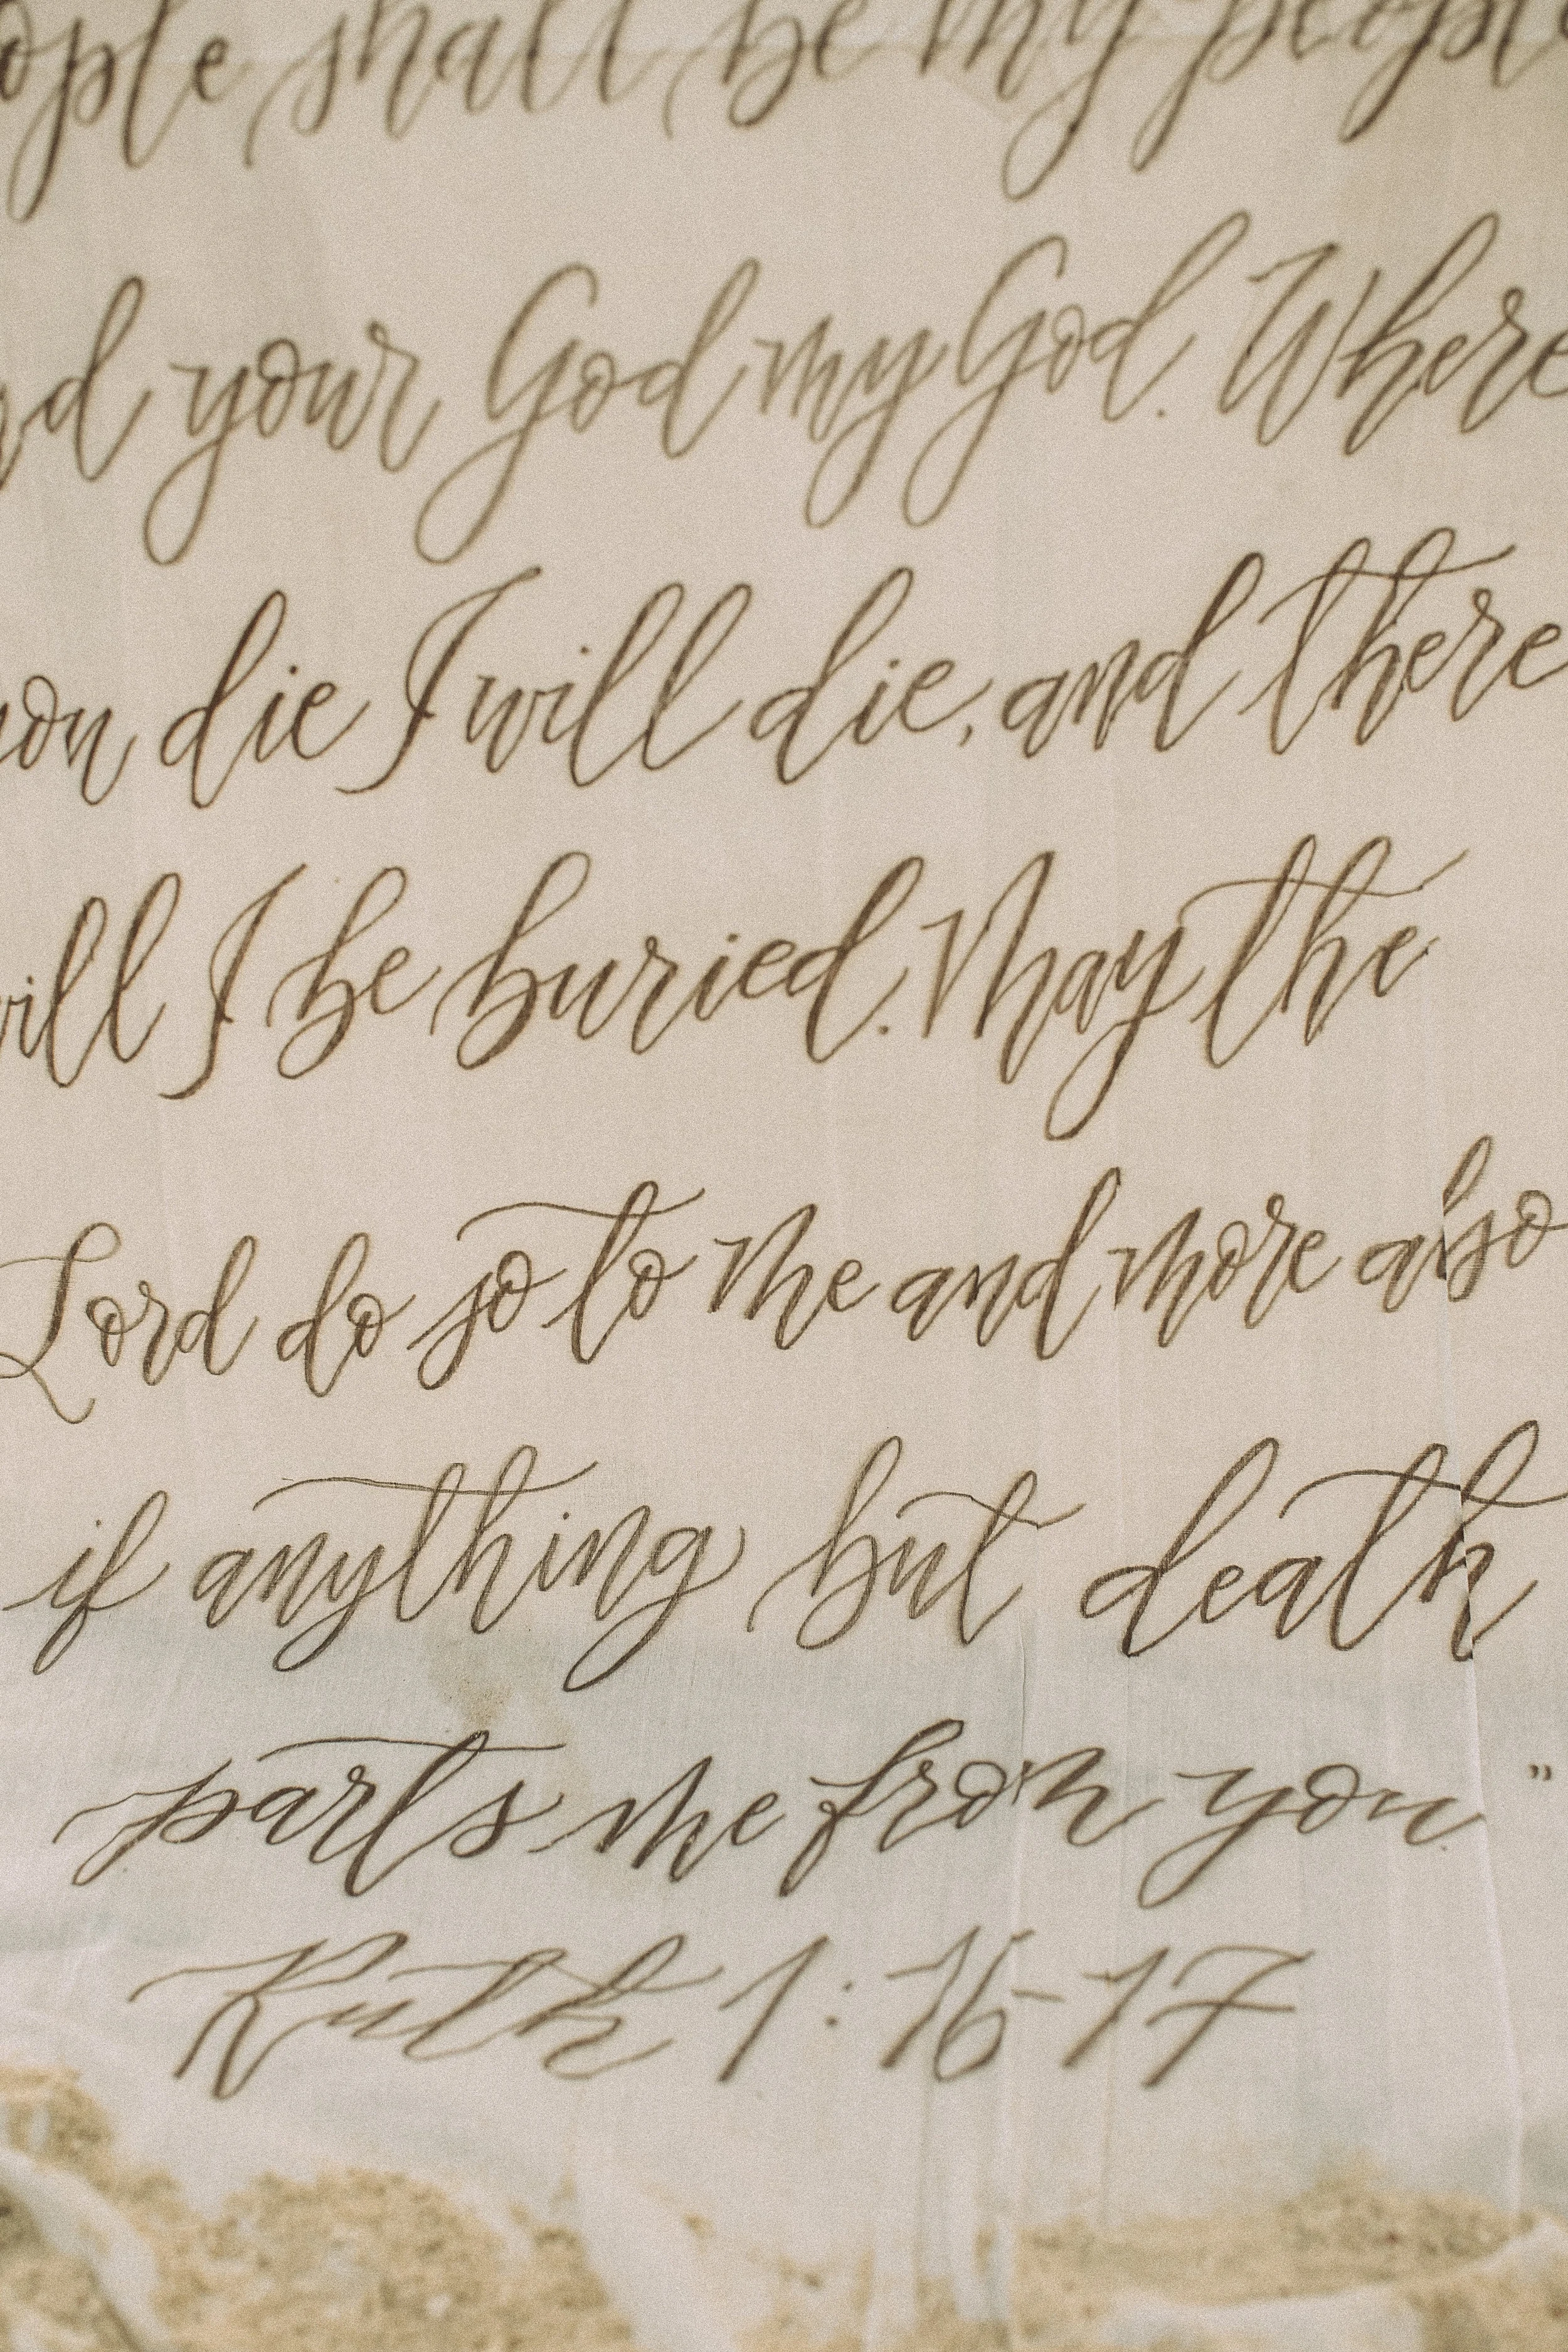 ople shall be my people
nd your God my God. Where
you die I will die, and there
will I be buried. May the
Lord do so to me and more also
if anything but death
parts me from you."
Ruth 1:16-17